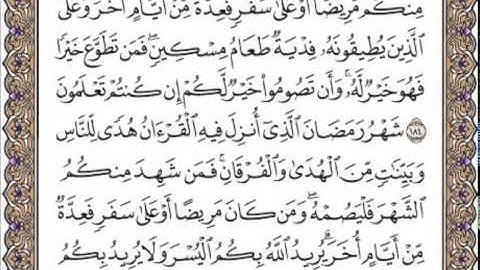 مِنكُم مَّرِيضًا أَوْ عَلَىٰ سَفَرٍ فَعِدَّةٌ مِّنْ أَيَّامٍ أُخَرَ وَعَلَى
ٱلَّذِينَ يُطِيقُونَهُۥ فِدْيَةٌ طَعَامُ مِسْكِينٍ ۖ فَمَن تَطَوَّعَ خَيْرًا
فَهُوَ خَيْرٌ لَّهُۥ ۚ وَأَن تَصُومُوا۟ خَيْرٌ لَّكُمْ إِن كُنتُمْ تَعْلَمُونَ
١٨٤ شَهْرُ رَمَضَانَ ٱلَّذِىٓ أُنزِلَ فِيهِ ٱلْقُرْءَانُ هُدًى لِّلنَّاسِ
وَبَيِّنَـٰتٍ مِّنَ ٱلْهُدَىٰ وَٱلْفُرْقَانِ ۚ فَمَن شَهِدَ مِنكُمُ
ٱلشَّهْرَ فَلْيَصُمْهُ ۖ وَمَن كَانَ مَرِيضًا أَوْ عَلَىٰ سَفَرٍ فَعِدَّةٌ
مِّنْ أَيَّامٍ أُخَرَ ۗ يُرِيدُ ٱللَّهُ بِكُمُ ٱلْيُسْرَ وَلَا يُرِيدُ بِكُمُ